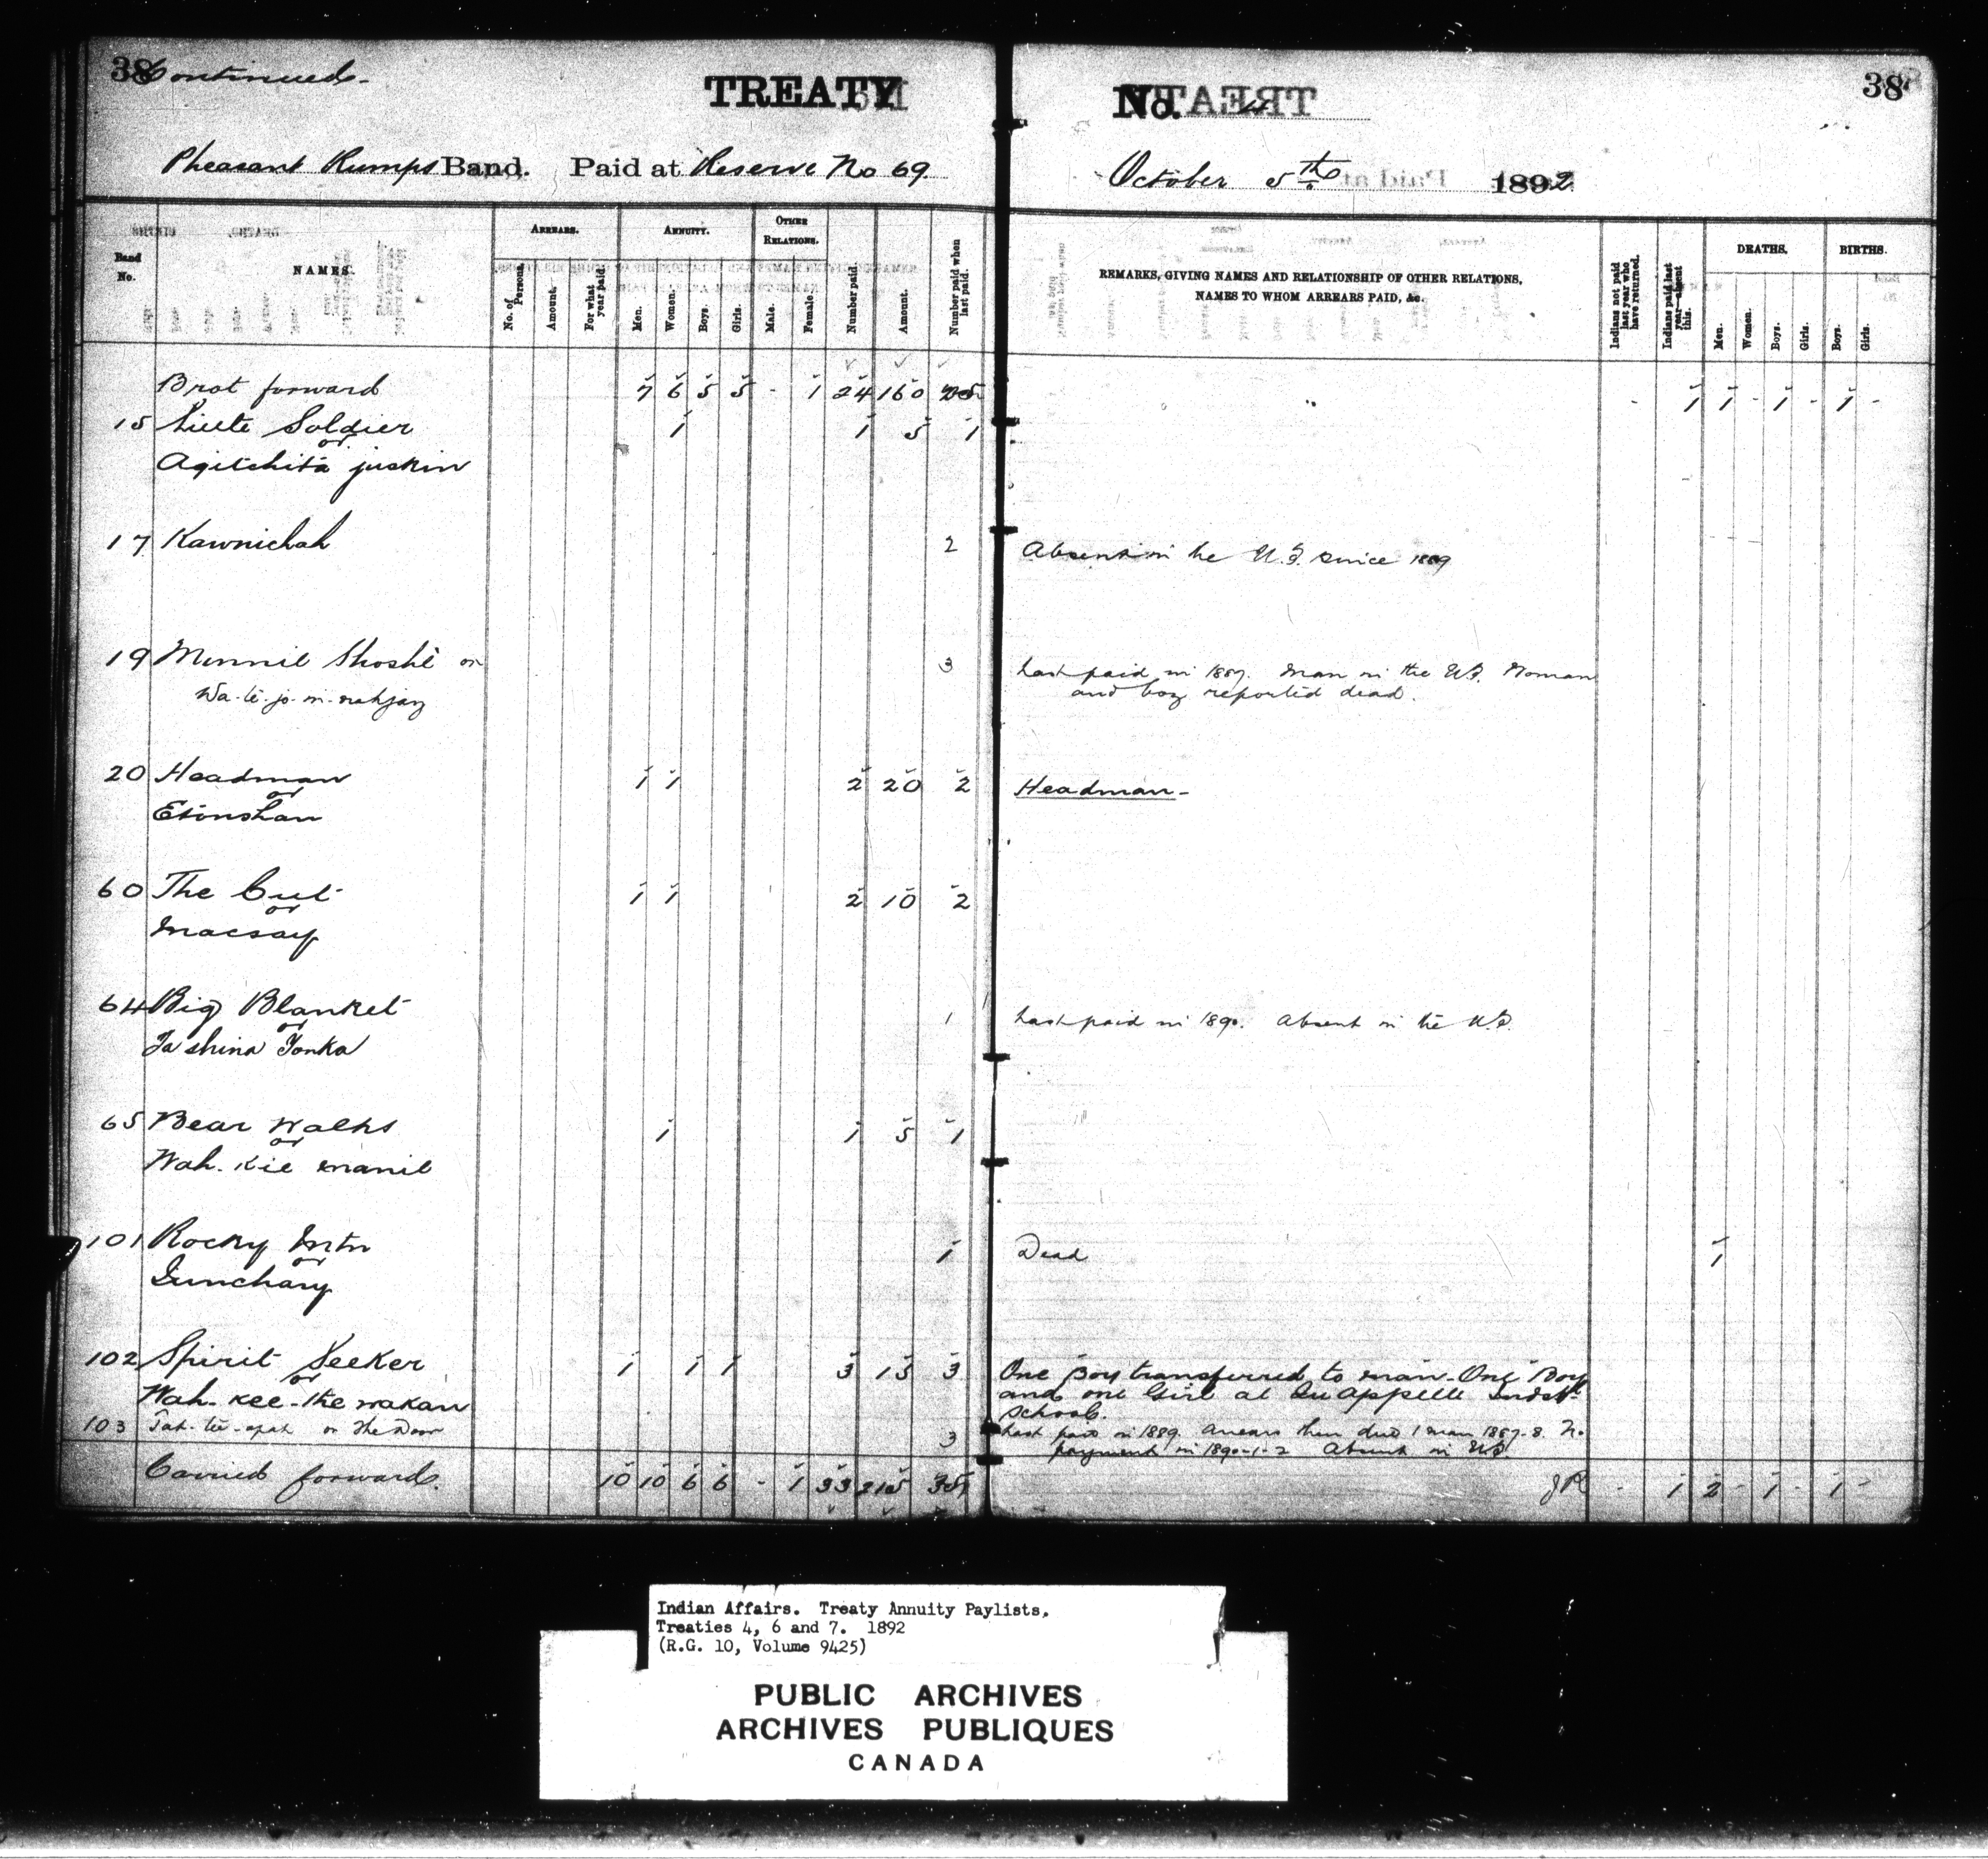 38 Continued -
TREATY No. 4 38
Pheasant Rumps Band. Paid at Reserve No 69. October 5th 1892
Band No.
NAMES.
ARREARS.
No. of Persons.
Amount.
For what year paid.
ANNUITY.
Men.
Women.
Boys.
Girls.
OTHER RELATIONS.
Male.
Female.
Number paid.
Amount.
Number paid when last paid.
REMARKS, GIVING NAMES AND RELATIONSHIP OF OTHER RELATIONS,
NAMES TO WHOM ARREARS PAID, &c.
Indians not paid last year who have returned.
Indians paid last year—absent this.
DEATHS.
Men.
Women.
Boys.
Girls.
BIRTHS.
Boys.
Girls.
Brot forward 7 6 5 5 - 1 24 160 - 1 1 - 1 - 1 -
15 Little Soldier 1 1 5 1
or
Agitchita juskin
17 Kawnichah 2 Absent in the U.S. since 1889
19 Minnie Shoshe or 3 Last paid in 1887. Man in the U.S. Woman
and boy reported dead.
20 Headman 1 1 2 20 2 Headman -
or
Etonshan
60 The Cut 1 1 2 10 2
or
Macsay
64 Big Blanket 1 Last paid in 1890. Absent in the U.S.
or
Ta shina Tonka
65 Bear Walks 1 1 5 1
or
Wah. Kie manie
101 Rocky Mtn 1 Dead 1
or
102 Spirit Seeker 1 1 1 3 15 3 One Boy transferred to man - One Boy
or
Wah - kee - the wakan and one Girl at Qu'Appelle Indstl
School.
103 or The Door 3 Last paid in 1889. Arrears then due 1 man 1887-8. No
payment in 1890-1-2 Absent in U.S.
Carried forward. 10 10 6 6 - 1 33 215 - 1 2 - 1 - 1 -
Indian Affairs. Treaty Annuity Paylists.
Treaties 4, 6 and 7. 1892
(R.G. 10, Volume 9425)
PUBLIC ARCHIVES
ARCHIVES PUBLIQUES
CANADA